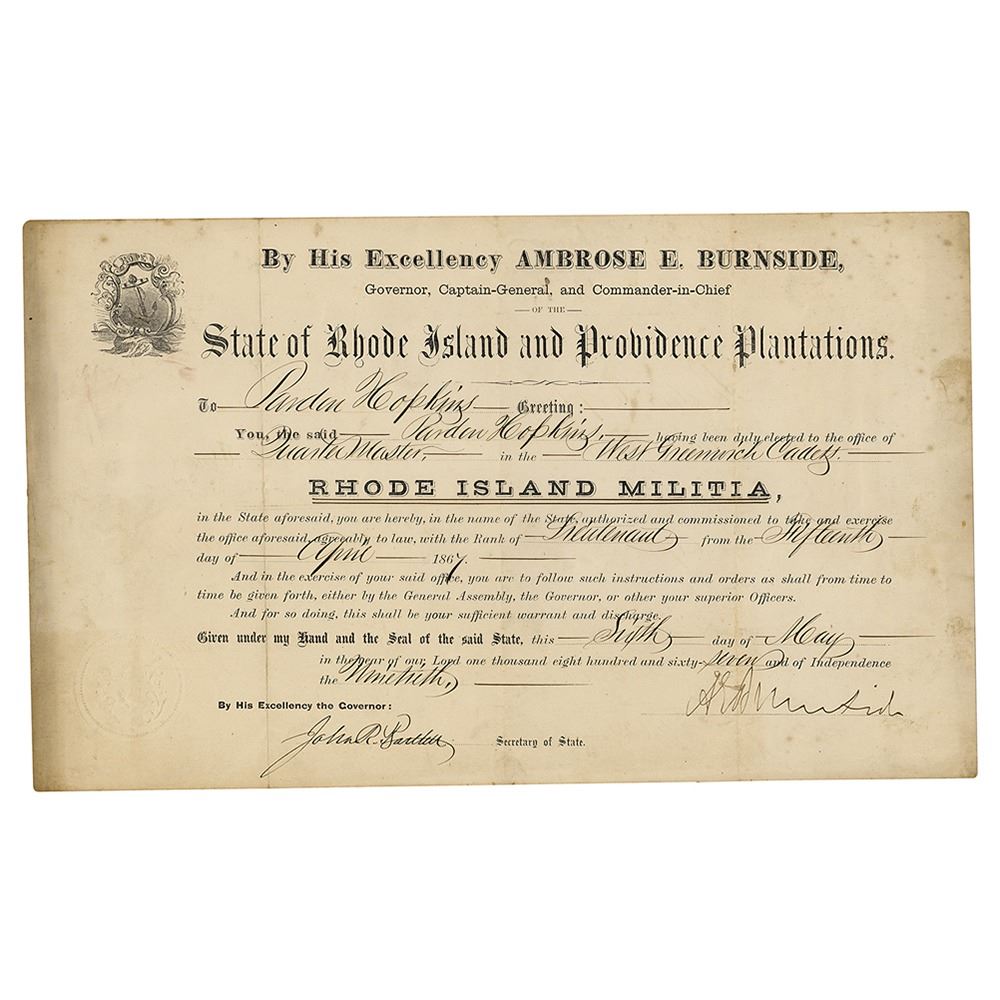 HOPE
By His Excellency AMBROSE E. BURNSIDE,
Governor, Captain-General, and Commander-in-Chief
OF THE
State of Rhode Island and Providence Plantations.
To Pardon Hopkins Greeting:
You, the said Pardon Hopkins, having been duly elected to the office of
Quarter Master, in the West Greenwich Cadets.
RHODE ISLAND MILITIA,
in the State aforesaid, you are hereby, in the name of the State, authorized and commissioned to take and exercise
the office aforesaid, agreeably to law, with the Rank of Lieutenant from the Fifteenth
day of April 1867.
And in the exercise of your said office, you are to follow such instructions and orders as shall from time to
time be given forth, either by the General Assembly, the Governor, or other your superior Officers.
And for so doing, this shall be your sufficient warrant and discharge.
Given under my Hand and the Seal of the said State, this Sixth day of May
in the year of our Lord one thousand eight hundred and sixty-seven and of Independence
the Ninetieth,
A E Burnside
By His Excellency the Governor:
John R. Bartlett Secretary of State.